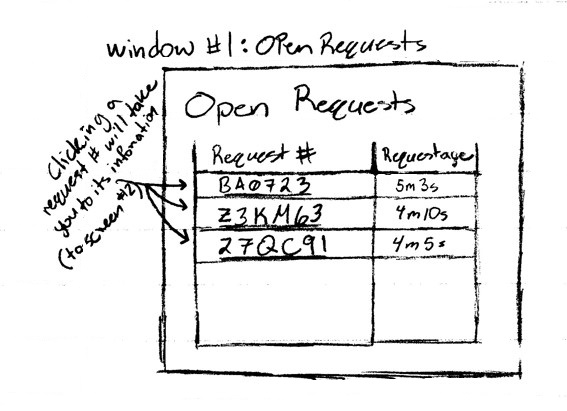 window #1: Open Requests
Clicking a
request # will take
you to its information
(to screen #2)
Open Requests
Request # Request age
BA0723 5m 3s
Z3KM63 4m 10s
27QC91 4m 5s